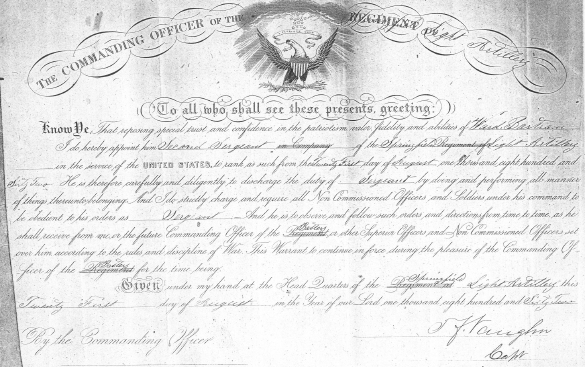 THE COMMANDING OFFICER OF THE REGIMENT of Light Artillery
To all who, shall see these presents, greeting:
Know Ye, That reposing special trust and confidence in the patriotism, valor, fidelity and abilities of Ward
I do hereby appoint him Second Sergeant in Company of the Springfield Regiment of Light Artillery
in the service of the UNITED STATES, to rank as such from the Twenty First day of August one thousand eight hundred and
Sixty Two He is therefore carefully and diligently to discharge the duty of Sergeant by doing and performing all manner
of things thereunto belonging. And I do strictly charge and require all Non Commissioned Officers and Soldiers under his command to
be obedient to his orders as Sergeant And he is to observe and follow such orders and directions from time to time, as he
shall receive from me, or the future Commanding Officer of the Battery Regiment, or other Superior Officers and Non Commissioned Officers set
over him according to the rules and discipline of War. This Warrant to continue in force during the pleasure of the Commanding Of-
ficer of the Battery Regiment for the time being.
Given under my hand at the Head Quarters of the Regiment Springfield Light Artillery this
Twenty First day of August in the Year of our Lord one thousand eight hundred and Sixty Two
By the Commanding Officer
T. F. Vaughn
Capt